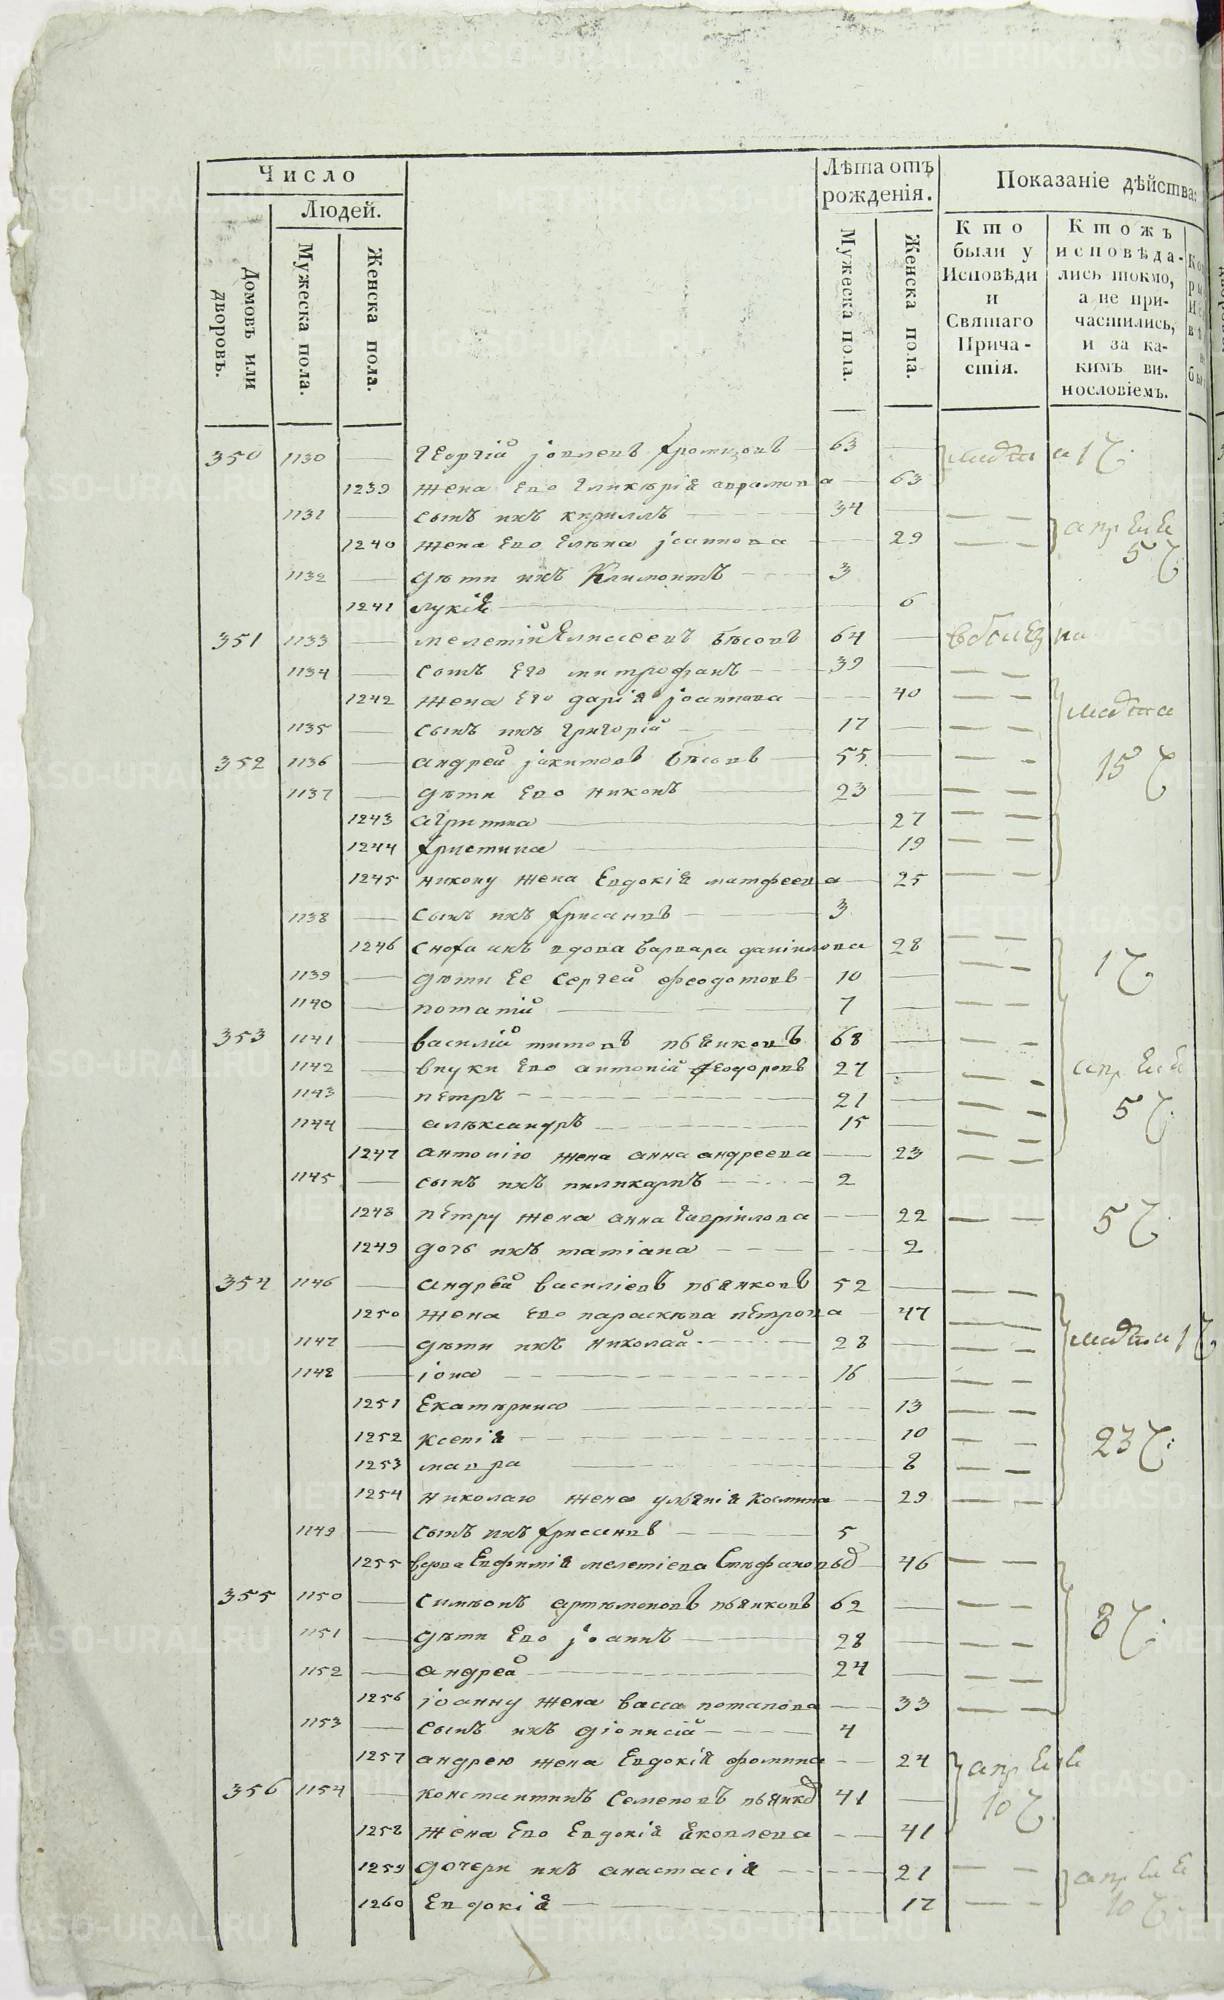 Число
Людей.
Домовъ или дворовъ.
Мужеска пола.
Женска пола.
Лѣта отъ рожденія.
Мужеска пола.
Женска пола.
Показаніе дѣйства:
Кто были у Исповѣди и Святаго Прича-стія.
Ктожъ исповѣда-лись токмо, а не при-частились, и за ка-кимъ ви-нословіемъ.
350 1130 — Георгій 63 —
1239 жена ево Гликерія 63
1131 — сынъ ихъ кириллъ 34
1240 жена ево Елена Іоаннова 29
апреля 5 ч
1132 — дѣти ихъ Климонтъ 3
1241 лукія 6
351 1133 — мелетій Елисеевъ Бѣсовъ 64 —
1134 — сынъ Его митрофанъ 39 —
1242 жена Его дарія Іоаннова 40
марта
1135 — сынъ ихъ григорій 17 —
352 1136 — андрей Бѣсовъ 55 —
15 ч
1137 — дѣти Ево никонъ 23 —
1243 агрипина 27
1244 христина 19
1245 никону жена Евдокія матфеева 25
1138 — сынъ ихъ хрисанфъ 3
1246 сноха ихъ вдова варвара даніилова 28
1 ч
1139 — дѣти Ее Сергей феодотовъ 10 —
1140 — потапій 7 —
353 1141 — василій титовъ пьянковъ 68 —
1142 — внуки Ево антоній феодоровъ 27 —
апреля
1143 — пѣтръ 21 —
5 ч.
1144 — алѣксандръ 15 —
1247 антонію жена анна андреева 23
1145 — сынъ ихъ поликарпъ 2
1248 пѣтру жена анна гавріилова 22
5 ч
1249 дочь ихъ татіана 2
354 1146 — андрей василіевъ пьянковъ 52 —
1250 жена Ево параскева пѣтрова 47
1147 — дѣти ихъ николай 28 —
марта 1 ч
1148 — іона 16 —
1251 Екатерина 13
1252 Ксенія 10
23 ч
1253 мавра 8
1254 николаю жена ульянія Космина 29
1149 — сынъ ихъ хрисанфъ 5
1255 вдова Евфимія мелетіева 46
355 1150 — симеонъ артемоновъ пьянковъ 62 —
8 ч.
1151 — дѣти Ево іоаннъ 28 —
1152 — андрей 24 —
1256 іоанну жена васса потапова 33
1153 — сынъ ихъ діонисій 4
1257 андрею жена Евдокія фомина 24
апреля
356 1154 — константинъ Семеновъ пьянко 41 —
10 ч
1258 жена Ево Евдокія Яковлева 41
1259 дочери ихъ анастасія 21
апреля
1260 Евдокія 17
10 ч.
METRIKI.GASO-URAL.RU